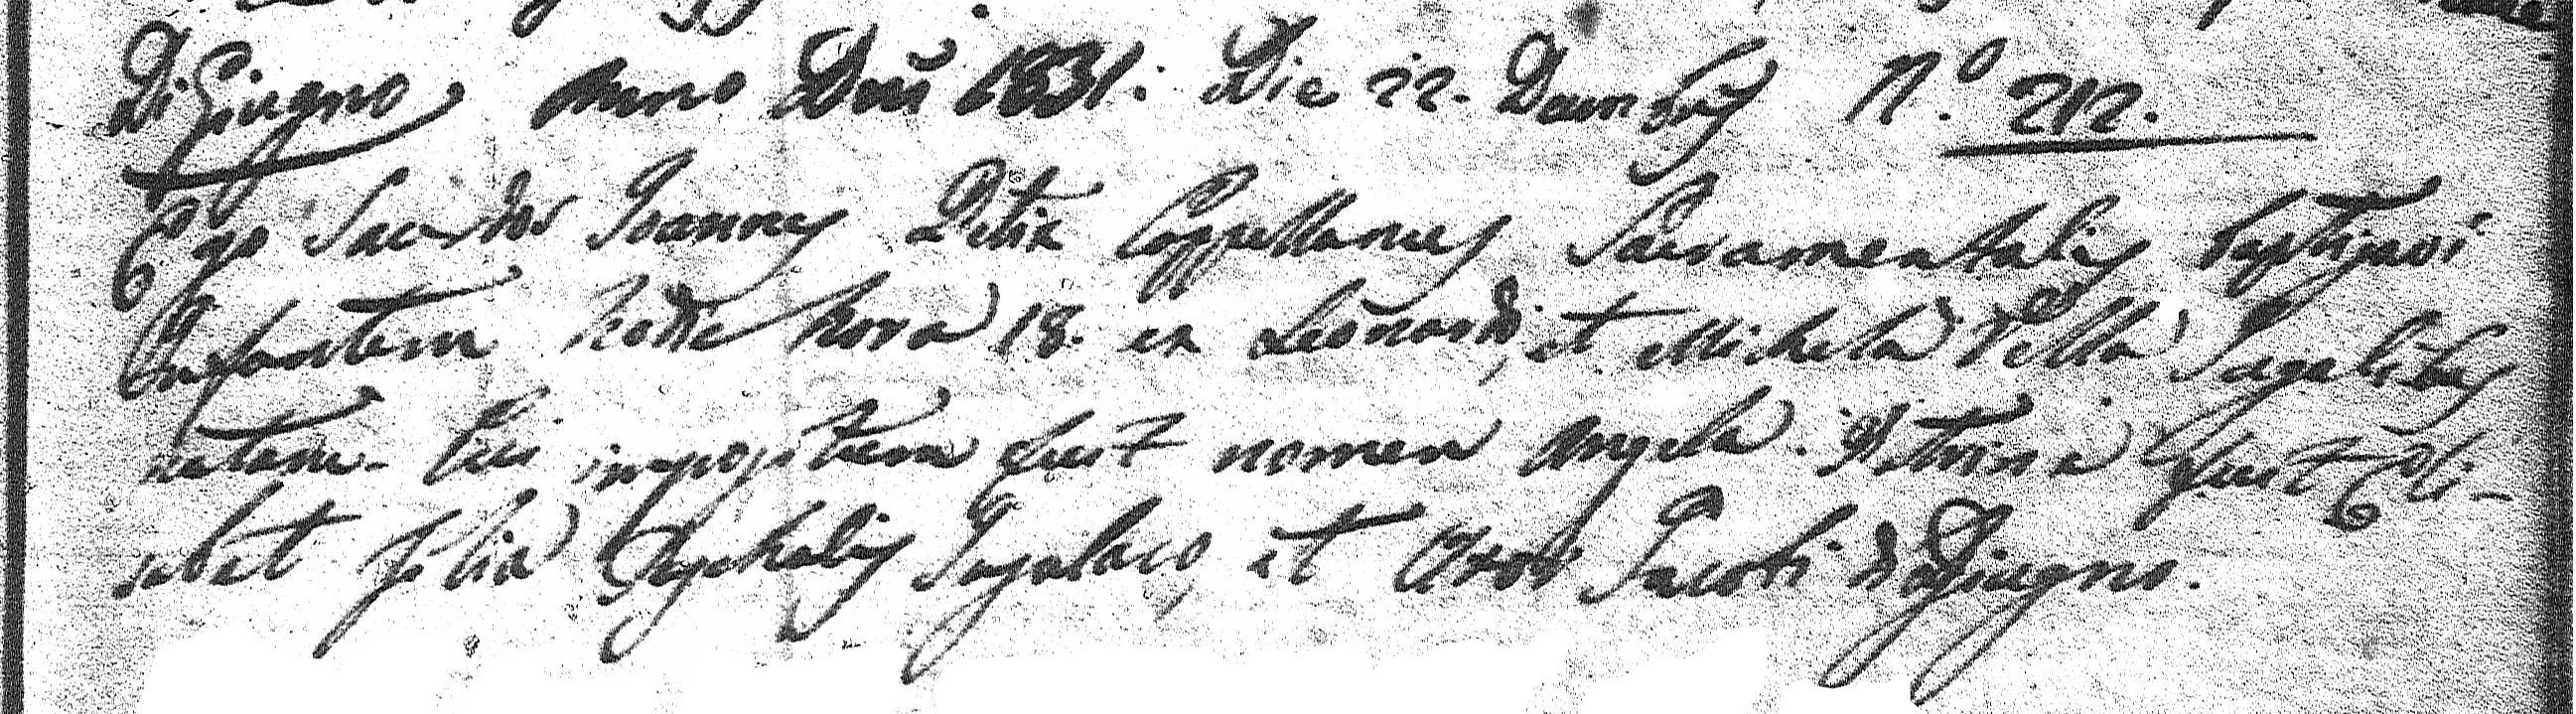 Di Giugno Anno Dñi 1831. Die 22. Decembris N.o 212.
Ego Sacerdos Joannes Petix Cappellanus Sacramentalis baptizavi
Infantem hodie hora 18. ex Leonardo, et Michela Vella Jugalibus
natam. Cui impositum fuit nomen Angela. Patrina fuit Eli-
sabet filia Paschalis et Uxor Jacobi di Giugno.